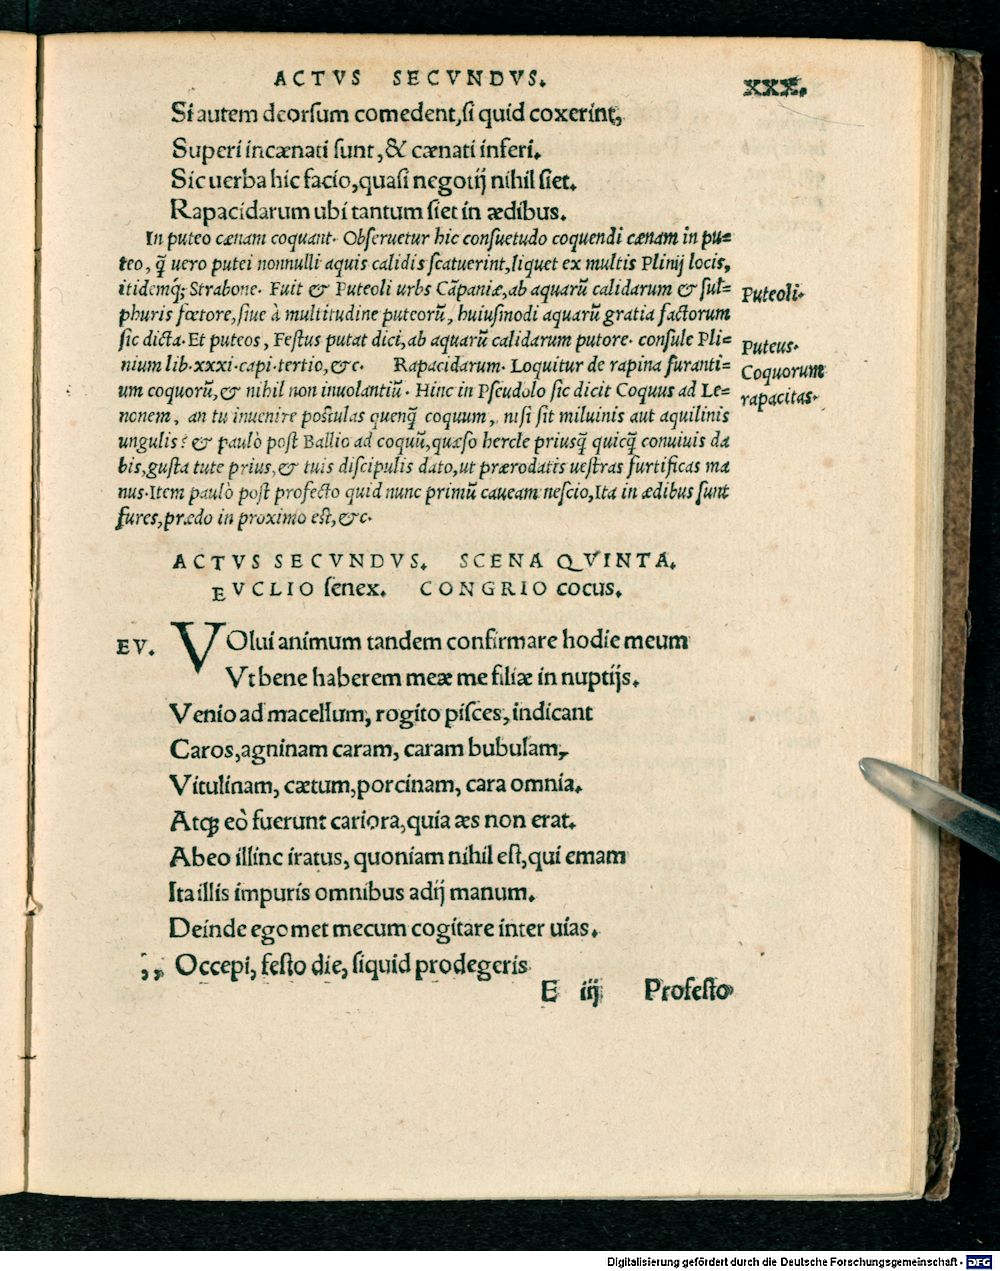 ACTVS SECVNDVS.
XXX.
Si autem deorſum comedent, ſi quid coxerint,
Superi incænati ſunt, & cænati inferi.
Sic uerba hic facio, quaſi negotij nihil ſiet.
Rapacidarum ubi tantum ſiet in ædibus.
In puteo cænam coquant. Obſeruetur hic conſuetudo coquendi cænam in pu=
teo, q̃ uero putei nonnulli aquis calidis ſcatuerint, liquet ex multis Plinij locis,
itidemq; Strabone. Fuit & Puteoli urbs Cãpaniæ, ab aquarũ calidarum & ſul=
phuris fœtore, ſiue à multitudine puteorũ, huiuſmodi aquarũ gratia factorum
ſic dicta. Et puteos, Feſtus putat dici, ab aquarũ calidarum putore. conſule Pli=
nium lib. xxxi. capi. tertio, &c. Rapacidarum. Loquitur de rapina furanti=
um coquorũ, & nihil non inuolantiũ. Hinc in Pſeudolo ſic dicit Coquus ad Le=
nonem, an tu inuenire poſtulas quenq̃ coquum, niſi ſit miluinis aut aquilinis
ungulis? & paulò poſt Ballio ad coquũ, quæſo hercle priusq̃ quicq̃ conuiuis da
bis, guſta tute prius, & tuis diſcipulis dato, ut prærodatis ueſtras furtificas ma
nus. Item paulò poſt profecto quid nunc primũ caueam neſcio, Ita in ædibus ſunt
fures, prædo in proximo eſt, &c.
Puteoli.
Puteus.
Coquorum
rapacitas.
ACTVS SECVNDVS. SCENA QVINTA.
EVCLIO ſenex. CONGRIO cocus.
EV. VOlui animum tandem confirmare hodie meum
Vt bene haberem meæ me filiæ in nuptijs.
Venio ad macellum, rogito piſces, indicant
Caros, agninam caram, caram bubulam,
Vitulinam, cætum, porcinam, cara omnia.
Atq; eò fuerunt cariora, quia æs non erat.
Abeo illinc iratus, quoniam nihil eſt, qui emam
Ita illis impuris omnibus adij manum.
Deinde egomet mecum cogitare inter uias.
,, Occepi, feſto die, ſiquid prodegeris
E iij Profeſto
Digitalisierung gefördert durch die Deutsche Forschungsgemeinschaft - DFG